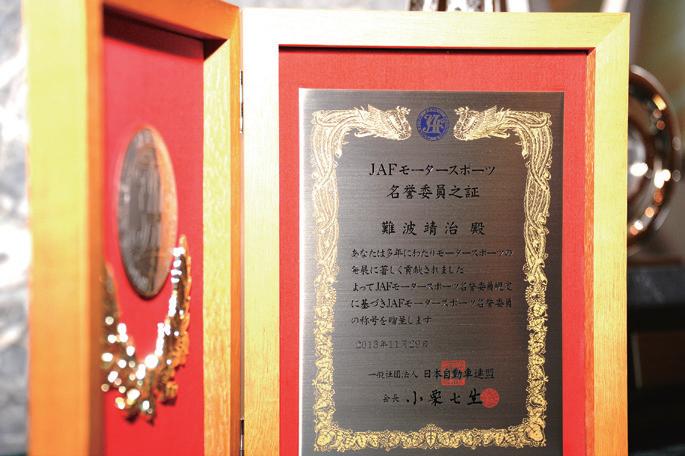 JAFモータースポーツ
名誉委員之証
難波靖治 殿
あなたは多年にわたりモータースポーツの
発展に著しく貢献されました
よってJAFモータースポーツ名誉委員規定
に基づきJAFモータースポーツ名誉委員
の称号を贈呈します
2013年11月29日
一般社団法人 日本自動車連盟
会長 小栗七生